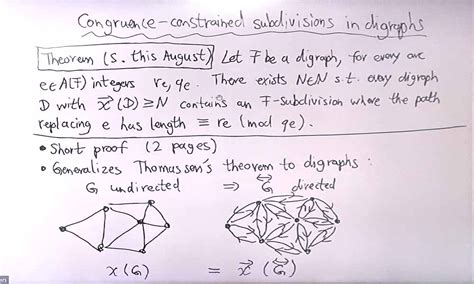 Congruence-constrained subdivisions in digraphs
Theorem (S. this August) Let F be a digraph, for every arc
e∈A(F) integers re, qe. There exists N∈N s.t. every digraph
D with χ⃗(D) ≥ N contains an F-subdivision where the path
replacing e has length ≡ re (mod qe).
• Short proof (2 pages)
• Generalizes Thomassen's theorem to digraphs:
G undirected ⇒ G⃡ directed
χ(G) = χ⃗(G⃡)